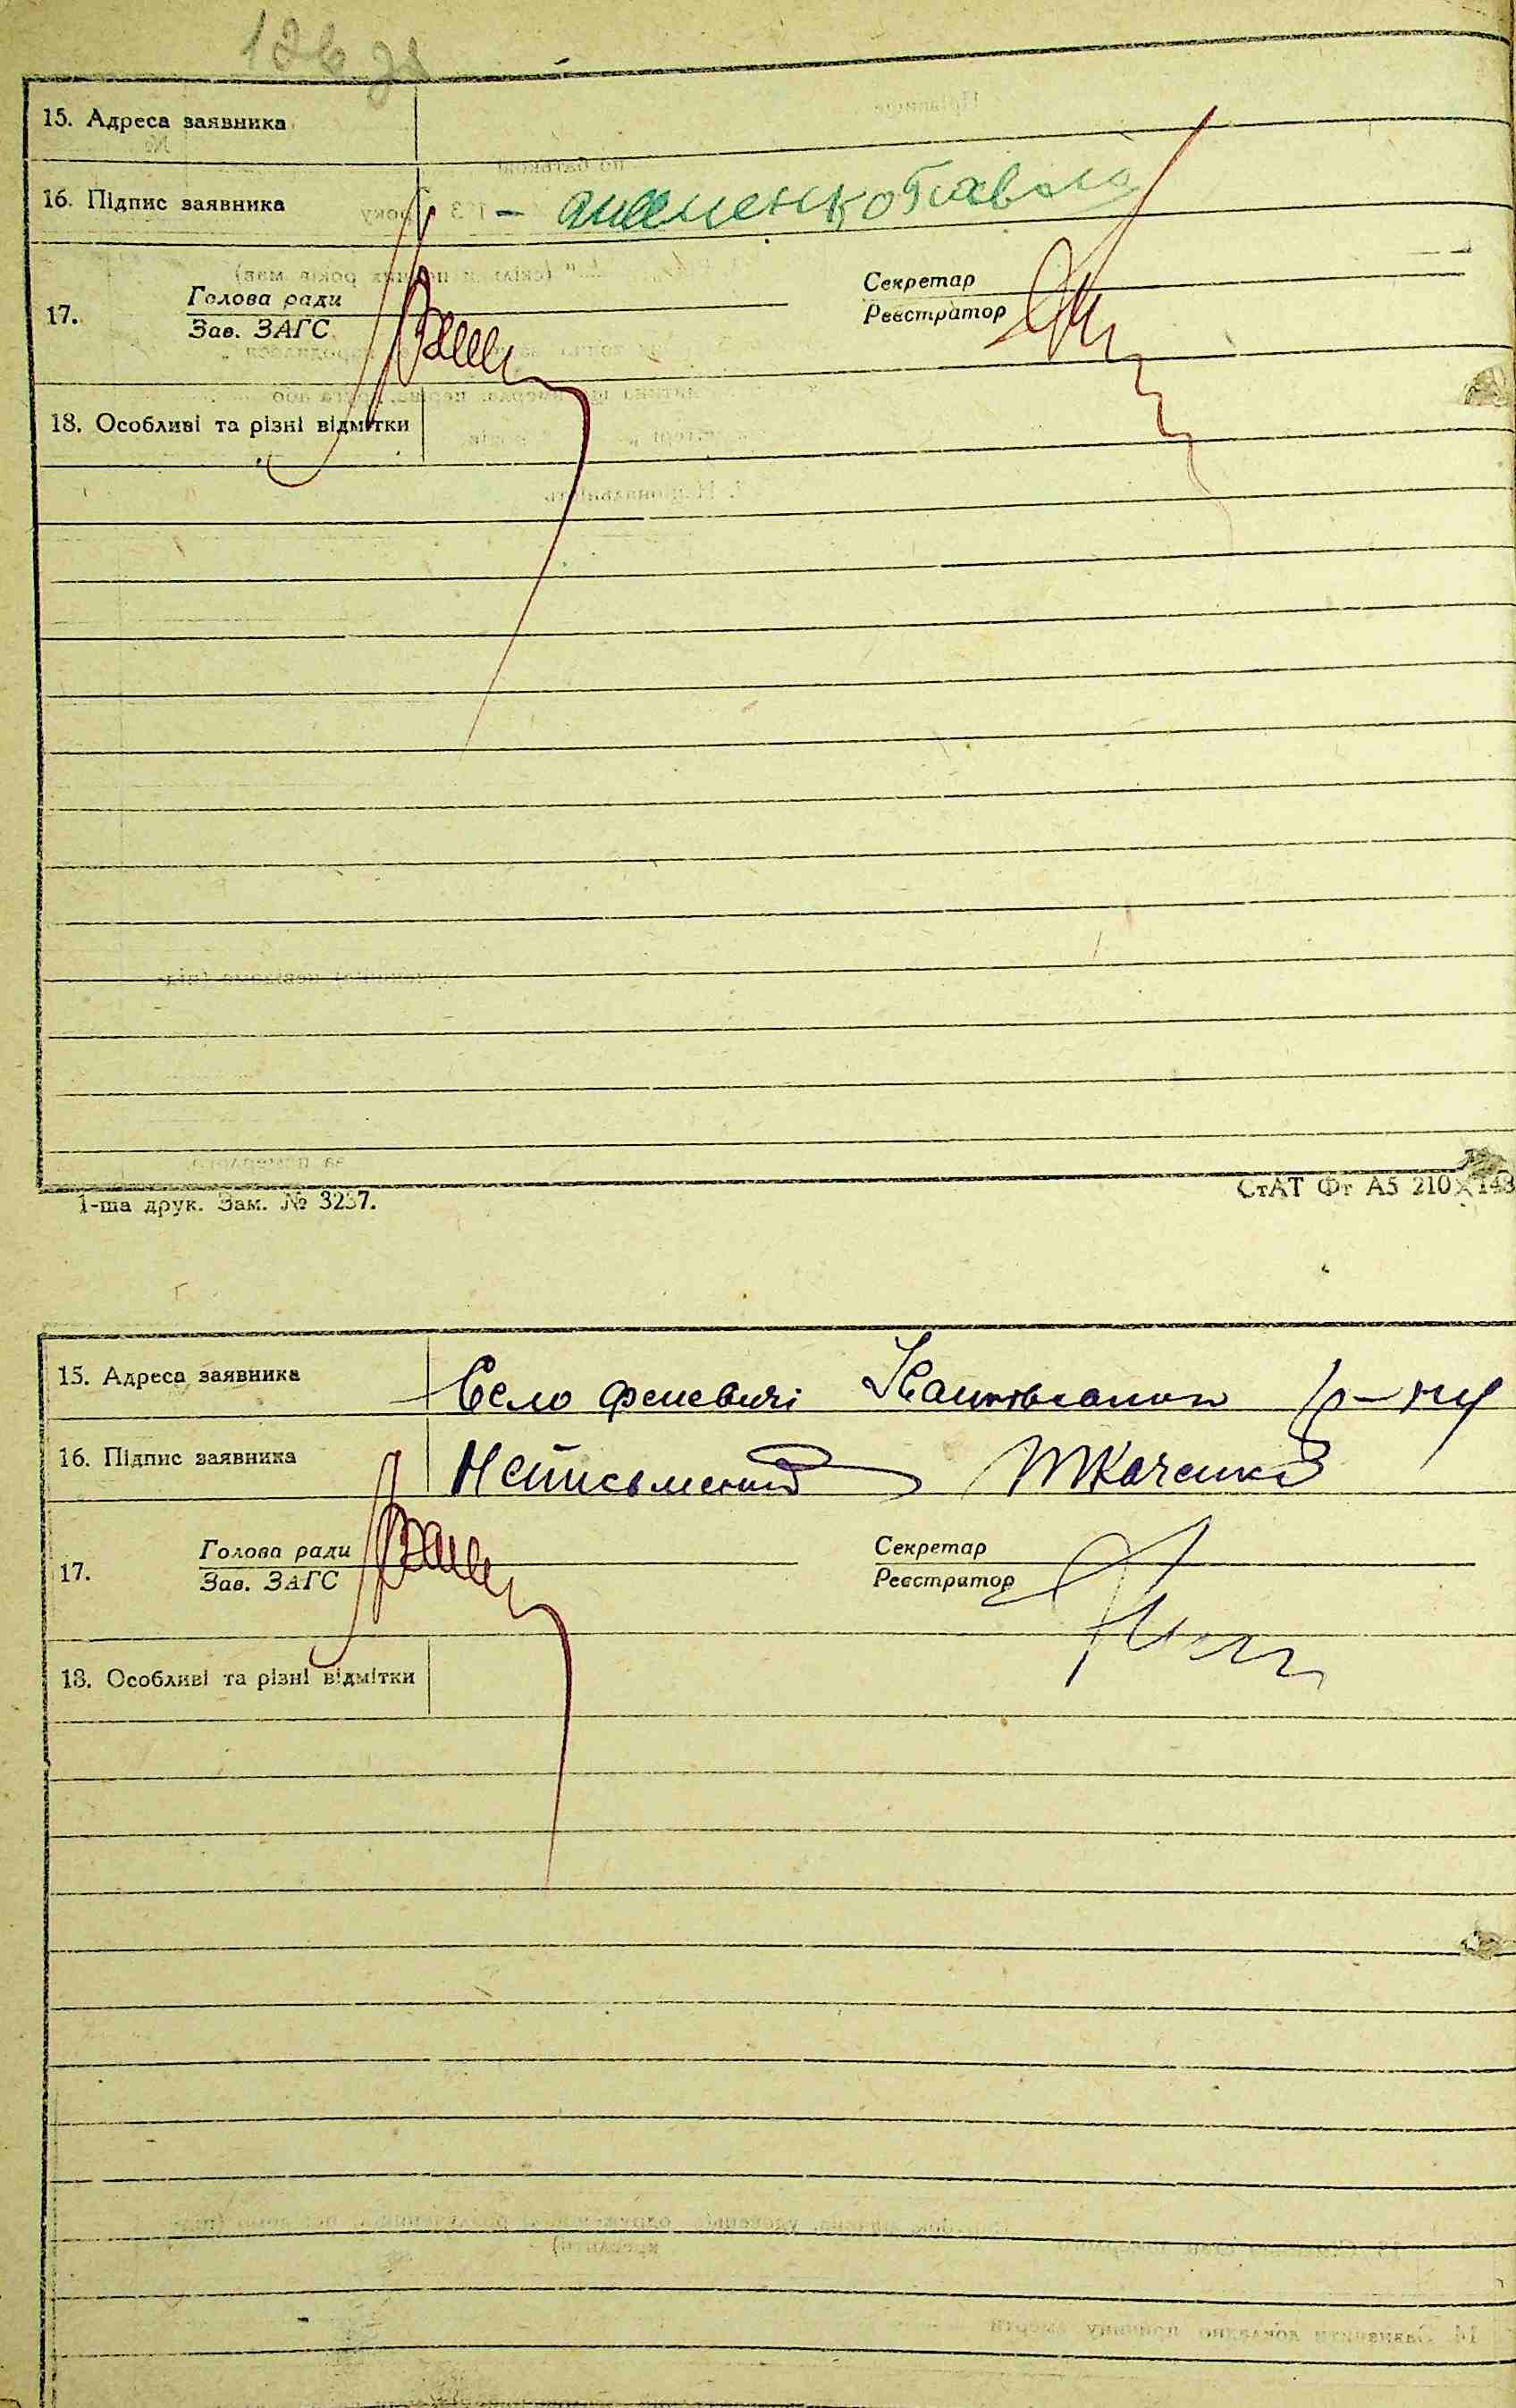 126 зв
15. Адреса заявника
16. Підпис заявника
17. Голова ради
Зав. ЗАГС
Секретар
Реєстратор
18. Особливі та різні відмітки
1-ша друк. Зам. № 3237.
СтАТ Фт А5 210×148
15. Адреса заявника Село Феневичі р-ну
16. Підпис заявника Неписьменний Ткаченко
17. Голова ради
Зав. ЗАГС
Секретар
Реєстратор
18. Особливі та різні відмітки